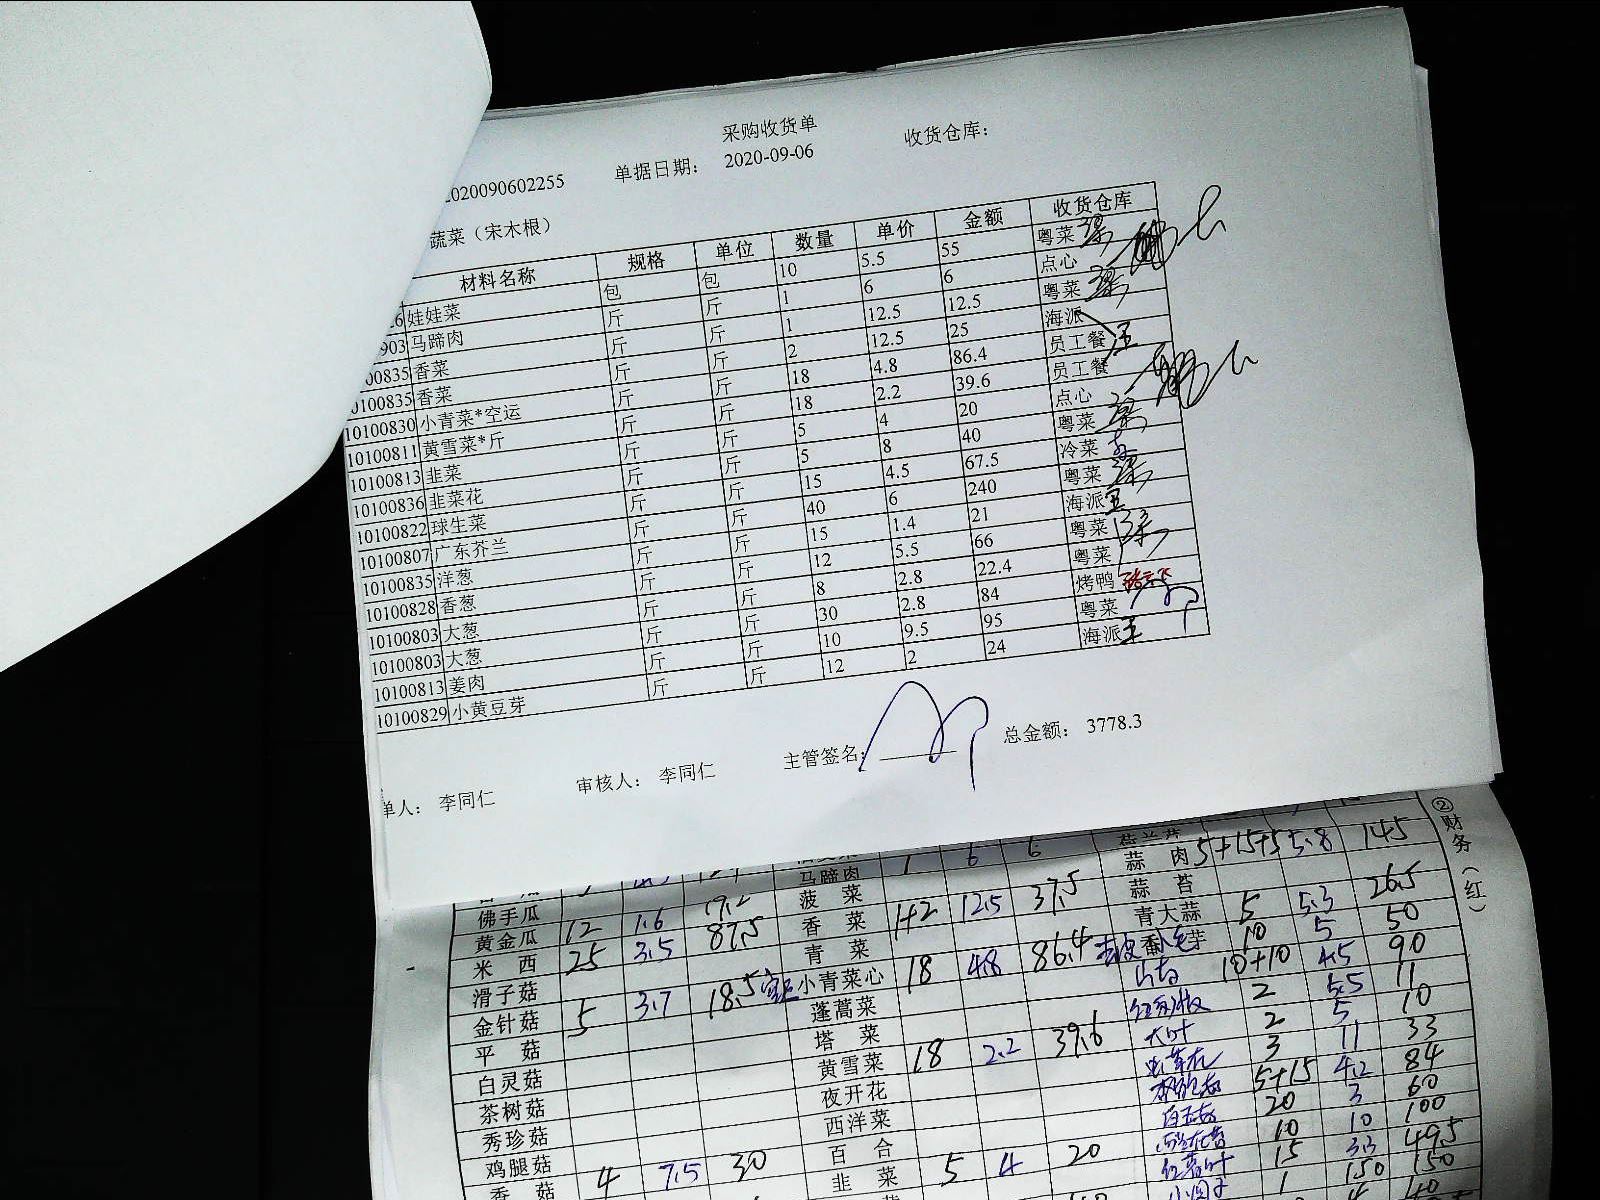 采购收货单
2020090602255 单据日期： 2020-09-06 收货仓库：
蔬菜（宋木根）
材料名称 规格 单位 数量 单价 金额 收货仓库
26 娃娃菜 包 包 10 5.5 55 粤菜
903 马蹄肉 斤 斤 1 6 6 点心
00835 香菜 斤 斤 1 12.5 12.5 粤菜
0100835 香菜 斤 斤 2 12.5 25 海派
10100830 小青菜*空运 斤 斤 18 4.8 86.4 员工餐
10100811 黄雪菜*斤 斤 斤 18 2.2 39.6 员工餐
10100813 韭菜 斤 斤 5 4 20 点心
10100836 韭菜花 斤 斤 5 8 40 粤菜
10100822 球生菜 斤 斤 15 4.5 67.5 冷菜
10100807 广东芥兰 斤 斤 40 6 240 粤菜
10100835 洋葱 斤 斤 15 1.4 21 海派 王
10100828 香葱 斤 斤 12 5.5 66 粤菜
10100803 大葱 斤 斤 8 2.8 22.4 粤菜
10100803 大葱 斤 斤 30 2.8 84 烤鸭
10100813 姜肉 斤 斤 10 9.5 95 粤菜
10100829 小黄豆芽 斤 斤 12 2 24 海派 王
单人： 李同仁 审核人： 李同仁 主管签名： 总金额： 3778.3
②财务（红）
马蹄肉 1 6 6 蒜肉 5+15+5 5.8 145
佛手瓜 12 1.6 19.2 菠菜 蒜苔 5 5.3 26.5
黄金瓜 25 3.5 87.5 香菜 1+2 12.5 37.5 青大蒜 10 5 50
米西 青菜 10+10 4.5 90
滑子菇 5 3.7 18.5 小青菜心 18 4.8 86.4 2 5.5 11
金针菇 蓬蒿菜 2 5 10
平菇 塔菜 3 11 33
白灵菇 黄雪菜 18 2.2 39.6 5+15 4.2 84
茶树菇 夜开花 20 3 60
秀珍菇 西洋菜 10 10 100
鸡腿菇 4 7.5 30 百合 15 3.3 49.5
香菇 韭菜 5 4 20 1 150 150